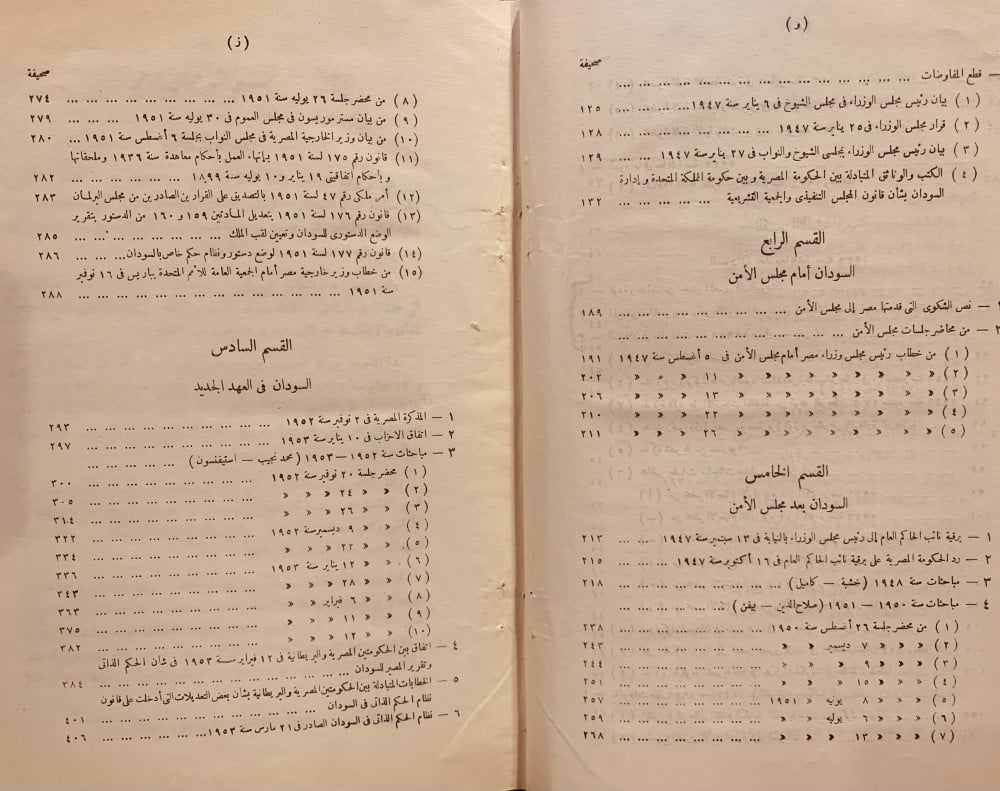 (و)
صحيفة
— قطع المفاوضات ... ... ... ... ... ... ... ... ... ...
(١) بيان رئيس مجلس الوزراء فى مجلس الشيوخ فى ٦ يناير سنة ١٩٤٧ ١٢٥
(٢) قرار مجلس الوزراء فى ٢٥ يناير سنة ١٩٤٧ ... ... ... ... ١٢٨
(٣) بيان رئيس مجلس الوزراء بمجلسى الشيوخ والنواب فى ٢٧ يناير سنة ١٩٤٧ ... ١٢٩
(٤) الكتب والوثائق المتبادلة بين الحكومة المصرية وبين حكومة المملكة المتحدة وإدارة
السودان بشأن قانون المجلس التنفيذى والجمعية التشريعية ... ... ... ... ١٣٢
القسم الرابع
السودان أمام مجلس الأمن
١ — نص الشكوى التى قدمتها مصر إلى مجلس الأمن ... ... ... ... ... ١٨٩
٢ — من محاضر جلسات مجلس الأمن ... ... ... ... ... ...
(١) من خطاب رئيس مجلس وزراء مصر أمام مجلس الأمن فى ٥ أغسطس سنة ١٩٤٧ ١٩١
(٢) » » » » » » » » » ١١ » » » ٢٠٢
(٣) » » » » » » » » » ١٣ » » » ٢٠٦
(٤) » » » » » » » » » ٢٢ » » » ٢١٠
(٥) » » » » » » » » » ٢٦ » » » ٢١١
القسم الخامس
السودان بعد مجلس الأمن
١ — برقية نائب الحاكم العام إلى رئيس مجلس الوزراء بالنيابة فى ١٣ سبتمبر سنة ١٩٤٧ ... ٢١٣
٢ — رد الحكومة المصرية على برقية نائب الحاكم العام فى ١٦ أكتوبر سنة ١٩٤٧ ... ... ٢١٥
٣ — مباحثات سنة ١٩٤٨ (خشبة — كامبل) ... ... ... ... ... ٢١٨
٤ — مباحثات سنة ١٩٥٠ — ١٩٥١ (صلاح الدين — بيفن) ... ... ... ...
(١) من محضر جلسة ٢٦ أغسطس سنة ١٩٥٠ ... ... ... ... ... ٢٣٨
(٢) » » » ٧ ديسمبر » » ... ... ... ... ٢٤٣
(٣) » » » ٩ » » » ... ... ... ... ٢٤٤
(٤) » » » ١٥ » » » ... ... ... ... ٢٥١
(٥) » » » ٨ يونيه » ١٩٥١ ... ... ... ... ٢٥٧
(٦) » » » ٦ يوليه » » ... ... ... ... ٢٥٩
(٧) » » » ١٣ » » » ... ... ... ... ٢٦٨
(ز)
صحيفة
(٨) من محضر جلسة ٢٦ يوليه سنة ١٩٥١ ... ... ... ... ... ٢٧٤
(٩) من بيان مستر موريسون فى مجلس العموم فى ٣٠ يوليه سنة ١٩٥١ ... ... ٢٧٩
(١٠) من بيان وزير الخارجية المصرية فى مجلس النواب بجلسة ٦ أغسطس سنة ١٩٥١ ... ٢٨٠
(١١) قانون رقم ١٧٥ لسنة ١٩٥١ بإنهاء العمل بأحكام معاهدة سنة ١٩٣٦ وملحقاتها
وبأحكام اتفاقيتى ١٩ يناير و١٠ يوليه سنة ١٨٩٩ ... ... ... ... ٢٨٢
(١٢) أمر ملكى رقم ٤٧ لسنة ١٩٥١ بالتصديق على القرارين الصادرين من مجلس البرلمان ٢٨٣
(١٣) قانون رقم ١٧٦ لسنة ١٩٥١ بتعديل المادتين ١٥٩ و ١٦٠ من الدستور بتقرير
الوضع الدستورى للسودان وتعيين لقب الملك ... ... ... ... ٢٨٥
(١٤) قانون رقم ١٧٧ لسنة ١٩٥١ لوضع دستور ونظام حكم خاص بالسودان ... ... ٢٨٦
(١٥) من خطاب وزير خارجية مصر أمام الجمعية العامة للأمم المتحدة بباريس فى ١٦ نوفمبر
سنة ١٩٥١ ... ... ... ... ... ... ... ... ... ... ٢٨٨
القسم السادس
السودان فى العهد الجديد
١ — المذكرة المصرية فى ٢ نوفمبر سنة ١٩٥٢ ... ... ... ... ... ٢٩٣
٢ — اتفاق الاحزاب فى ١٠ يناير سنة ١٩٥٣ ... ... ... ... ... ٢٩٧
٣ — مباحثات سنة ١٩٥٢ — ١٩٥٣ (محمد نجيب — استيفنسون) ... ... ... ...
(١) محضر جلسة ٢٠ نوفمبر سنة ١٩٥٢ ... ... ... ... ... ٣٠٠
(٢) » » ٢٤ » » » ... ... ... ... ... ٣٠٥
(٣) » » ٢٦ » » » ... ... ... ... ... ٣١٤
(٤) » » ٩ ديسمبر سنة ١٩٥٢ ... ... ... ... ... ٣٢٢
(٥) » » ٢٢ » » » ... ... ... ... ... ٣٣٤
(٦) » » ١٢ يناير سنة ١٩٥٣ ... ... ... ... ... ٣٣٦
(٧) » » ٢٨ » » » ... ... ... ... ... ٣٤٣
(٨) » » ٦ فبراير » » ... ... ... ... ... ٣٦٣
(٩) » » ١١ » » » ... ... ... ... ... ٣٧٥
(١٠) » » ١٢ » » » ... ... ... ... ... ٣٨٢
٤ — اتفاق بين الحكومتين المصرية والبريطانية فى ١٢ فبراير سنة ١٩٥٣ فى شأن الحكم الذاتى
وتقرير المصير للسودان ... ... ... ... ... ... ٣٨٤
٥ — الخطابات المتبادلة بين الحكومتين المصرية والبريطانية بشأن بعض التعديلات التى أدخلت على قانون
نظام الحكم الذاتى فى السودان ... ... ... ... ... ... ٤٠١
٦ — نظام الحكم الذاتى فى السودان الصادر فى ٢١ مارس سنة ١٩٥٣ ... ... ... ٤٠٦